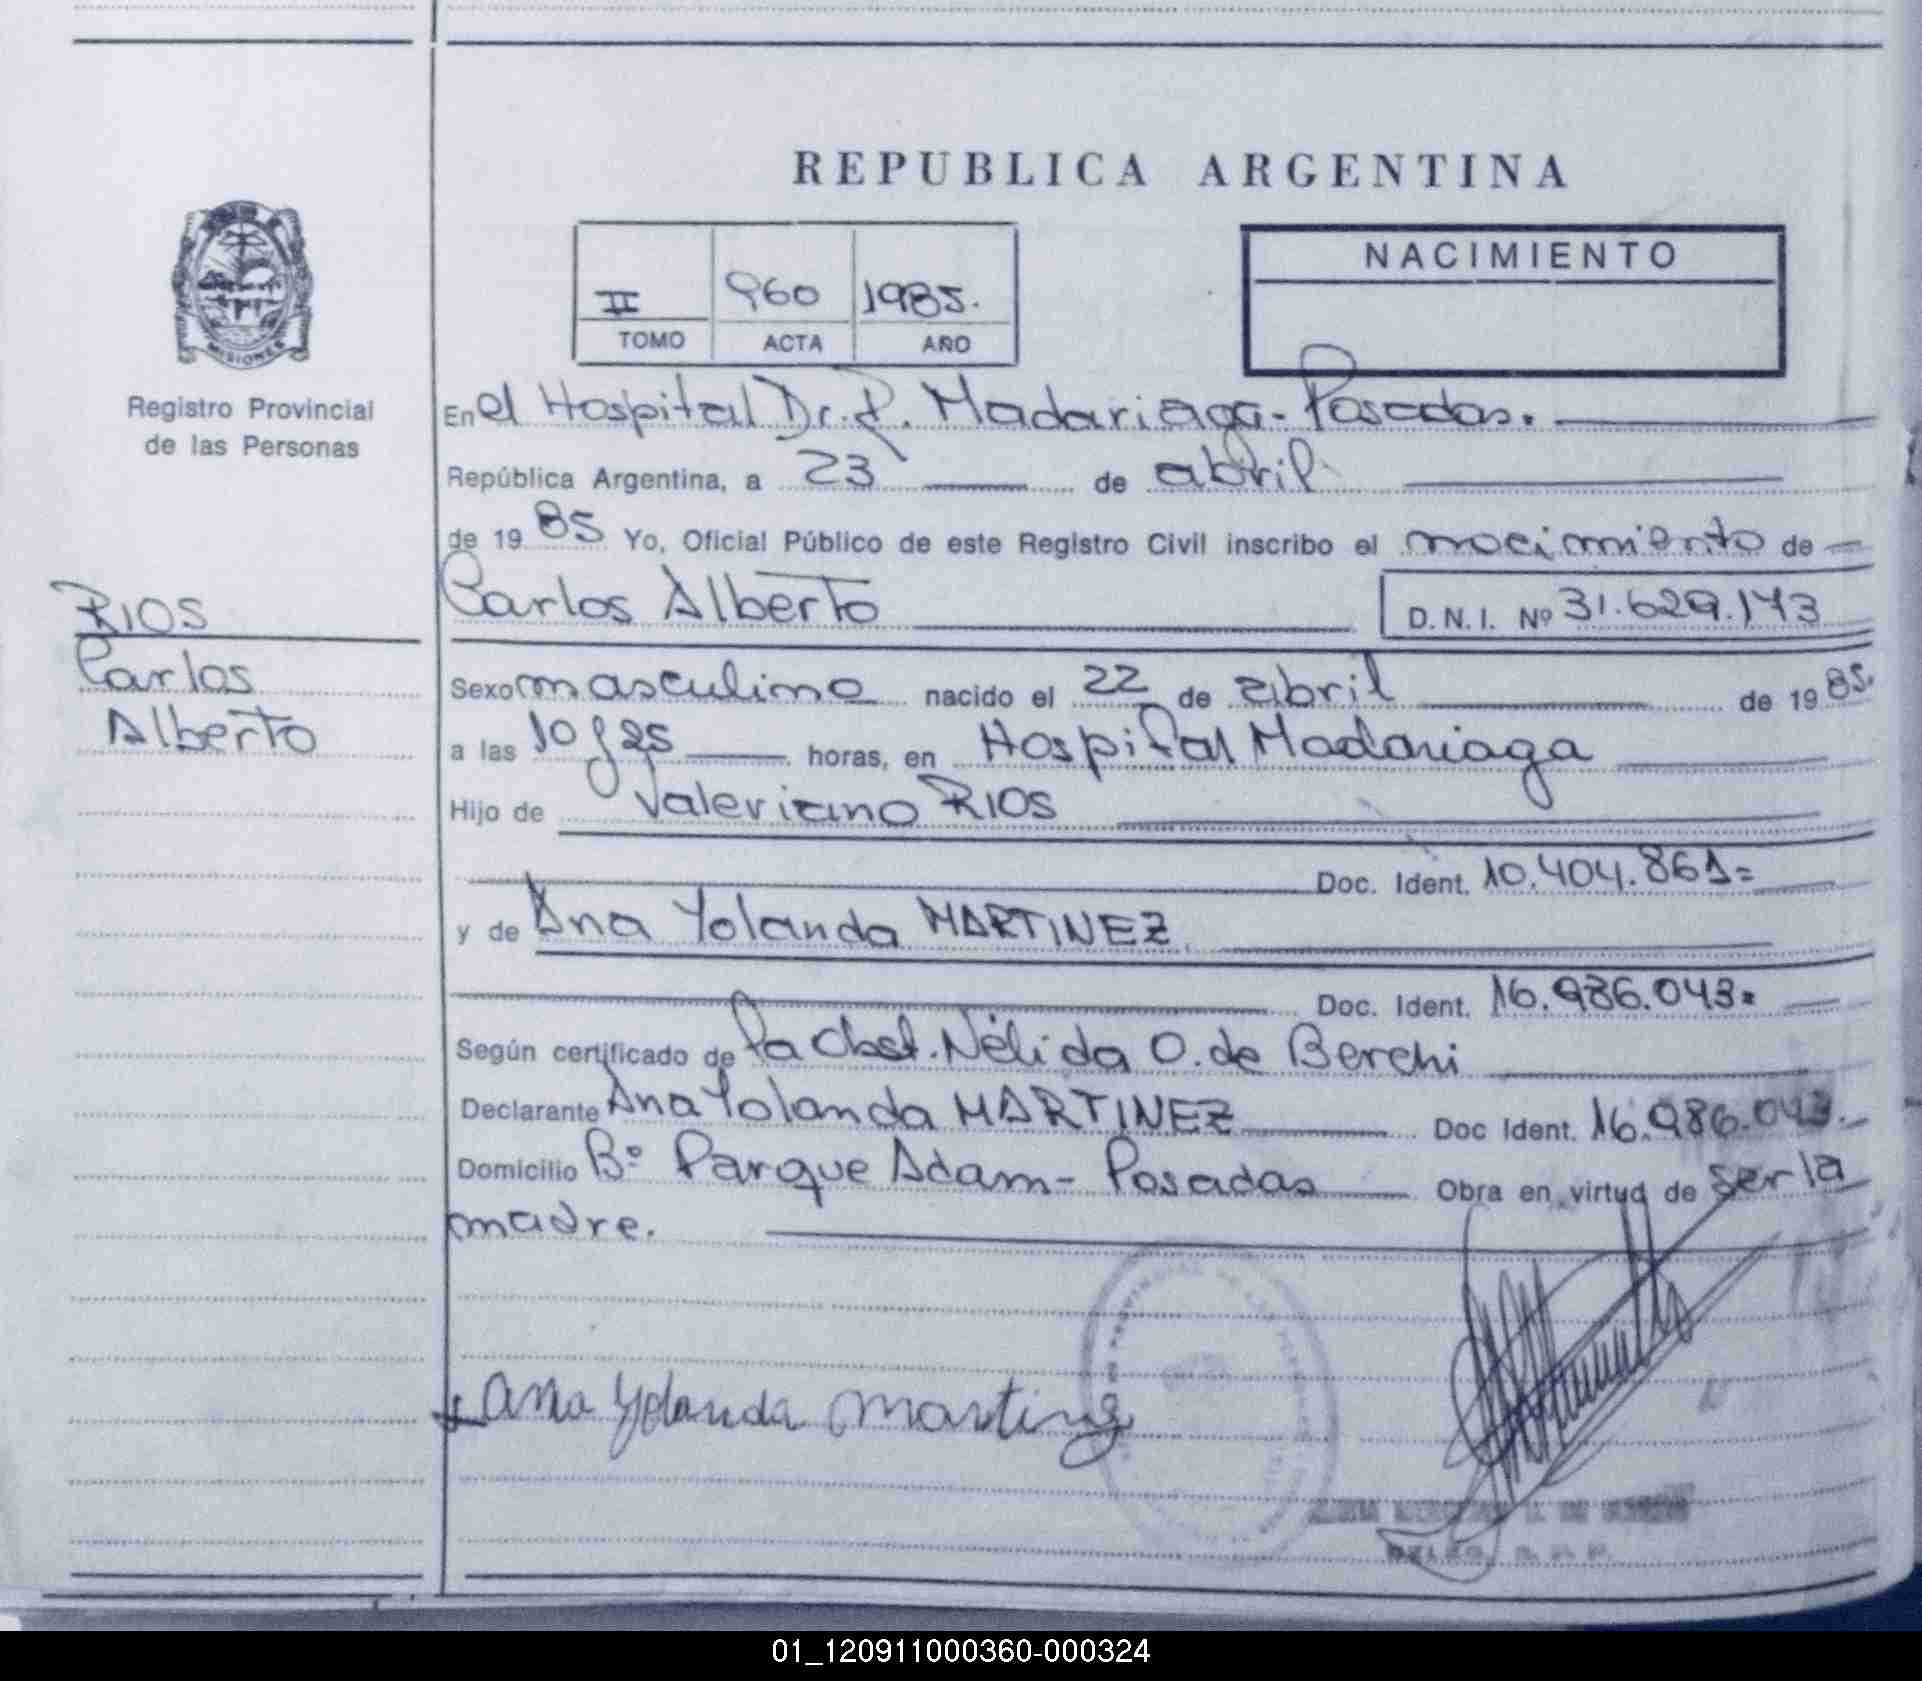 REPUBLICA ARGENTINA
MISIONES
Registro Provincial
de las Personas
II 960 1985.
TOMO ACTA AÑO
NACIMIENTO
En el Hospital Dr. R. Madariaga - Posadas.
República Argentina, a 23 de abril
de 1985 Yo, Oficial Público de este Registro Civil inscribo el nacimiento de
RIOS
Carlos
Alberto
Carlos Alberto D.N.I. Nº 31.629.143
Sexo masculino nacido el 22 de abril de 1985.
a las 10 y 25 horas, en Hospital Madariaga
Hijo de Valeriano RIOS
Doc. Ident. 10.404.861=
y de Ana Yolanda MARTINEZ
Doc. Ident. 16.986.043=
Según certificado de la Obst. Nélida O. de Berchi
Declarante Ana Yolanda MARTINEZ Doc Ident. 16.986.043.
Domicilio Bº Parque Adam - Posadas Obra en virtud de ser la
madre.
Ana Yolanda Martinez
01_120911000360-000324